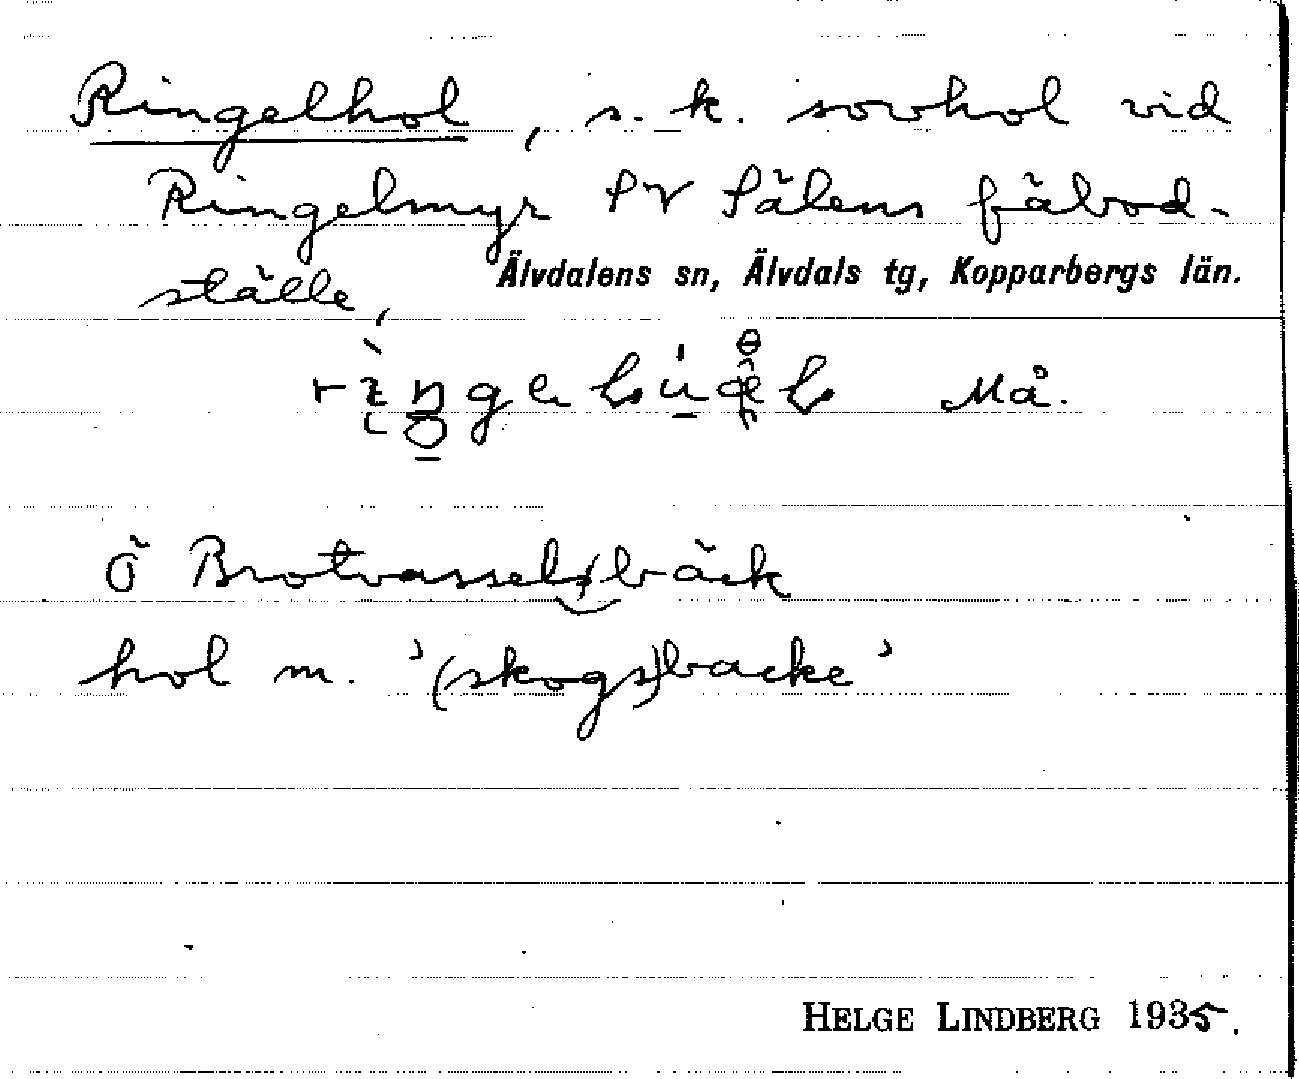 Ringelhol, s. k. sovhol vid
Ringelmyr SV Sälens fäbod-
ställe,
Älvdalens sn, Älvdals tg, Kopparbergs län.
Må.
Ö Brotvasselsbäck
hol m. '(skogs)backe'
HELGE LINDBERG 1935.